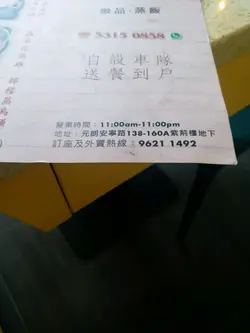 飯品·蒸飯
5315 0858
自設車隊
送餐到戶
營業時間：11:00am-11:00pm
地址：元朗安寧路138-160A紫荊樓地下
訂座及外賣熱線：9621 1492